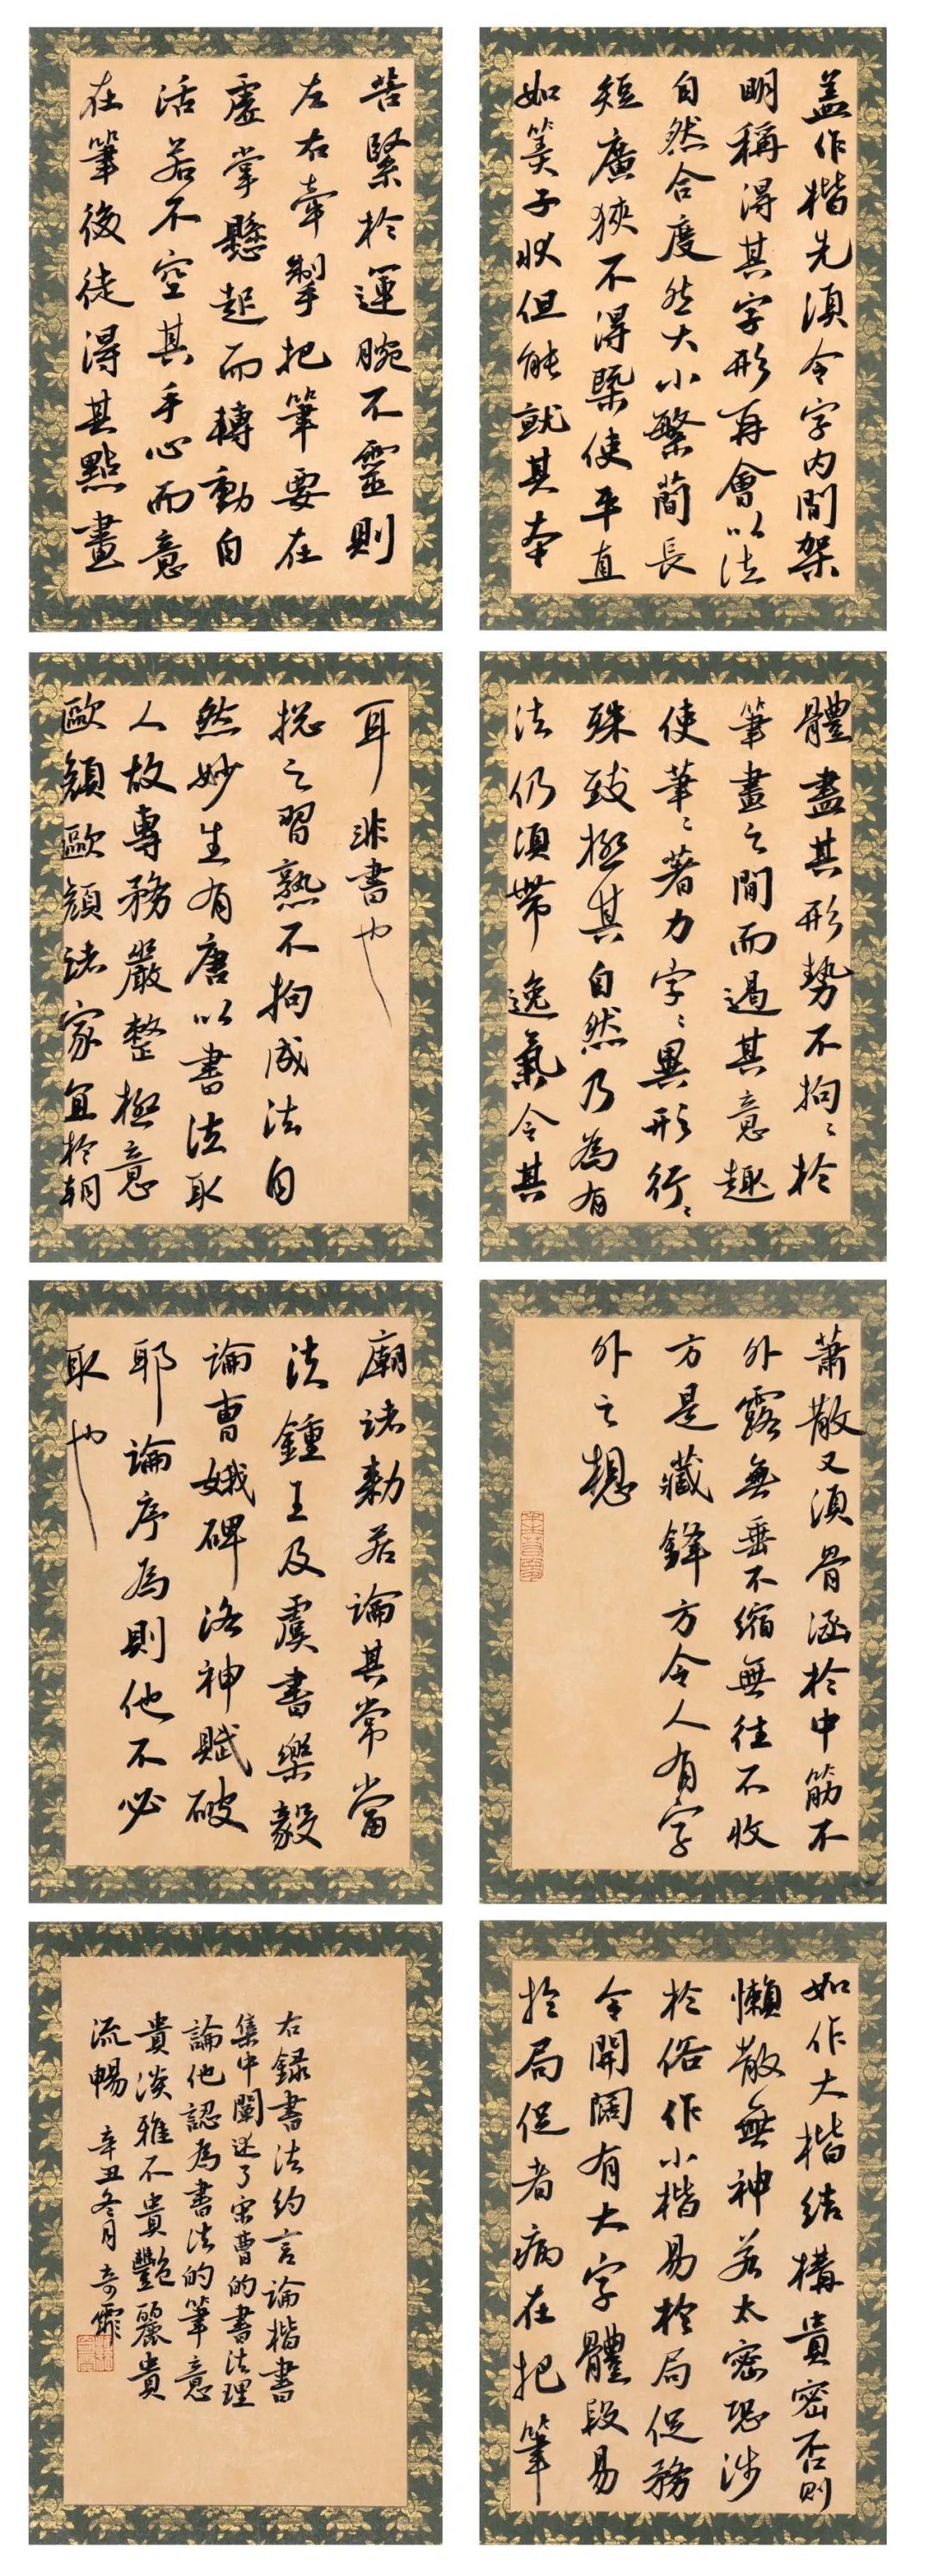 盖作楷先須令字内間架
明稱得其字形再會以法
自然合度然大小繁簡長
短廣狹不得槩使平直
如筭子狀但能就其本
體盡其形勢不拘〻於
筆畫之間而遏其意趣
使筆〻著力字〻異形行〻
殊致極其自然乃為有
法仍須帶逸氣令其
蕭散又須骨涵於中筋不
外露無垂不缩無往不收
方是藏鋒方令人有字
外之想
如作大楷结構貴密否則
懶散無神若太密恐涉
於俗作小楷易於局促務
令開闊有大字體段易
於局促者病在把筆
苦緊於運腕不靈則
左右牽掣把筆要在
虛掌懸起而轉動自
活若不空其手心而意
在筆後徒得其點畫
耳非書也
揔之習熟不拘成法自
然妙生有唐以書法取
人故專務嚴整極意
歐顏歐顏诸家宜於朝
廟诸勅若論其常當
法鍾王及虞書樂毅
論曹娥碑洛神賦破
耶論序為則他不必
取也
右録書法约言論楷書
集中闡述了宋曹的書法理
論他認為書法的筆意
貴淡雅不貴艷麗貴
流暢 辛丑冬月奇霏